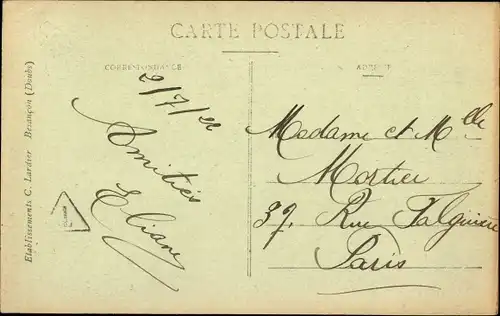 CARTE POSTALE
CORRESPONDANCE
ADRESSE
2/7/22
Amitiés
Eliane
Madame et Mlle
Mortier
37, Rue Falguière
Paris
Etablissements C. Lardier Besançon (Doubs)